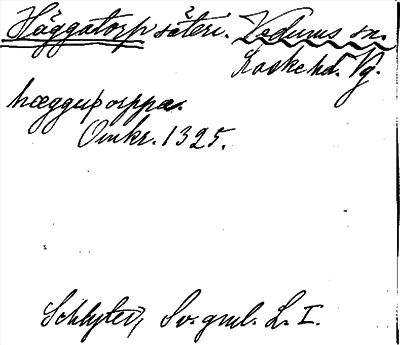 Häggatorp säteri. Vedums sn.
Laske hd. Vg.
hægguþorppa.
Omkr. 1325.
Schlyter, Sv. gml. L. I.